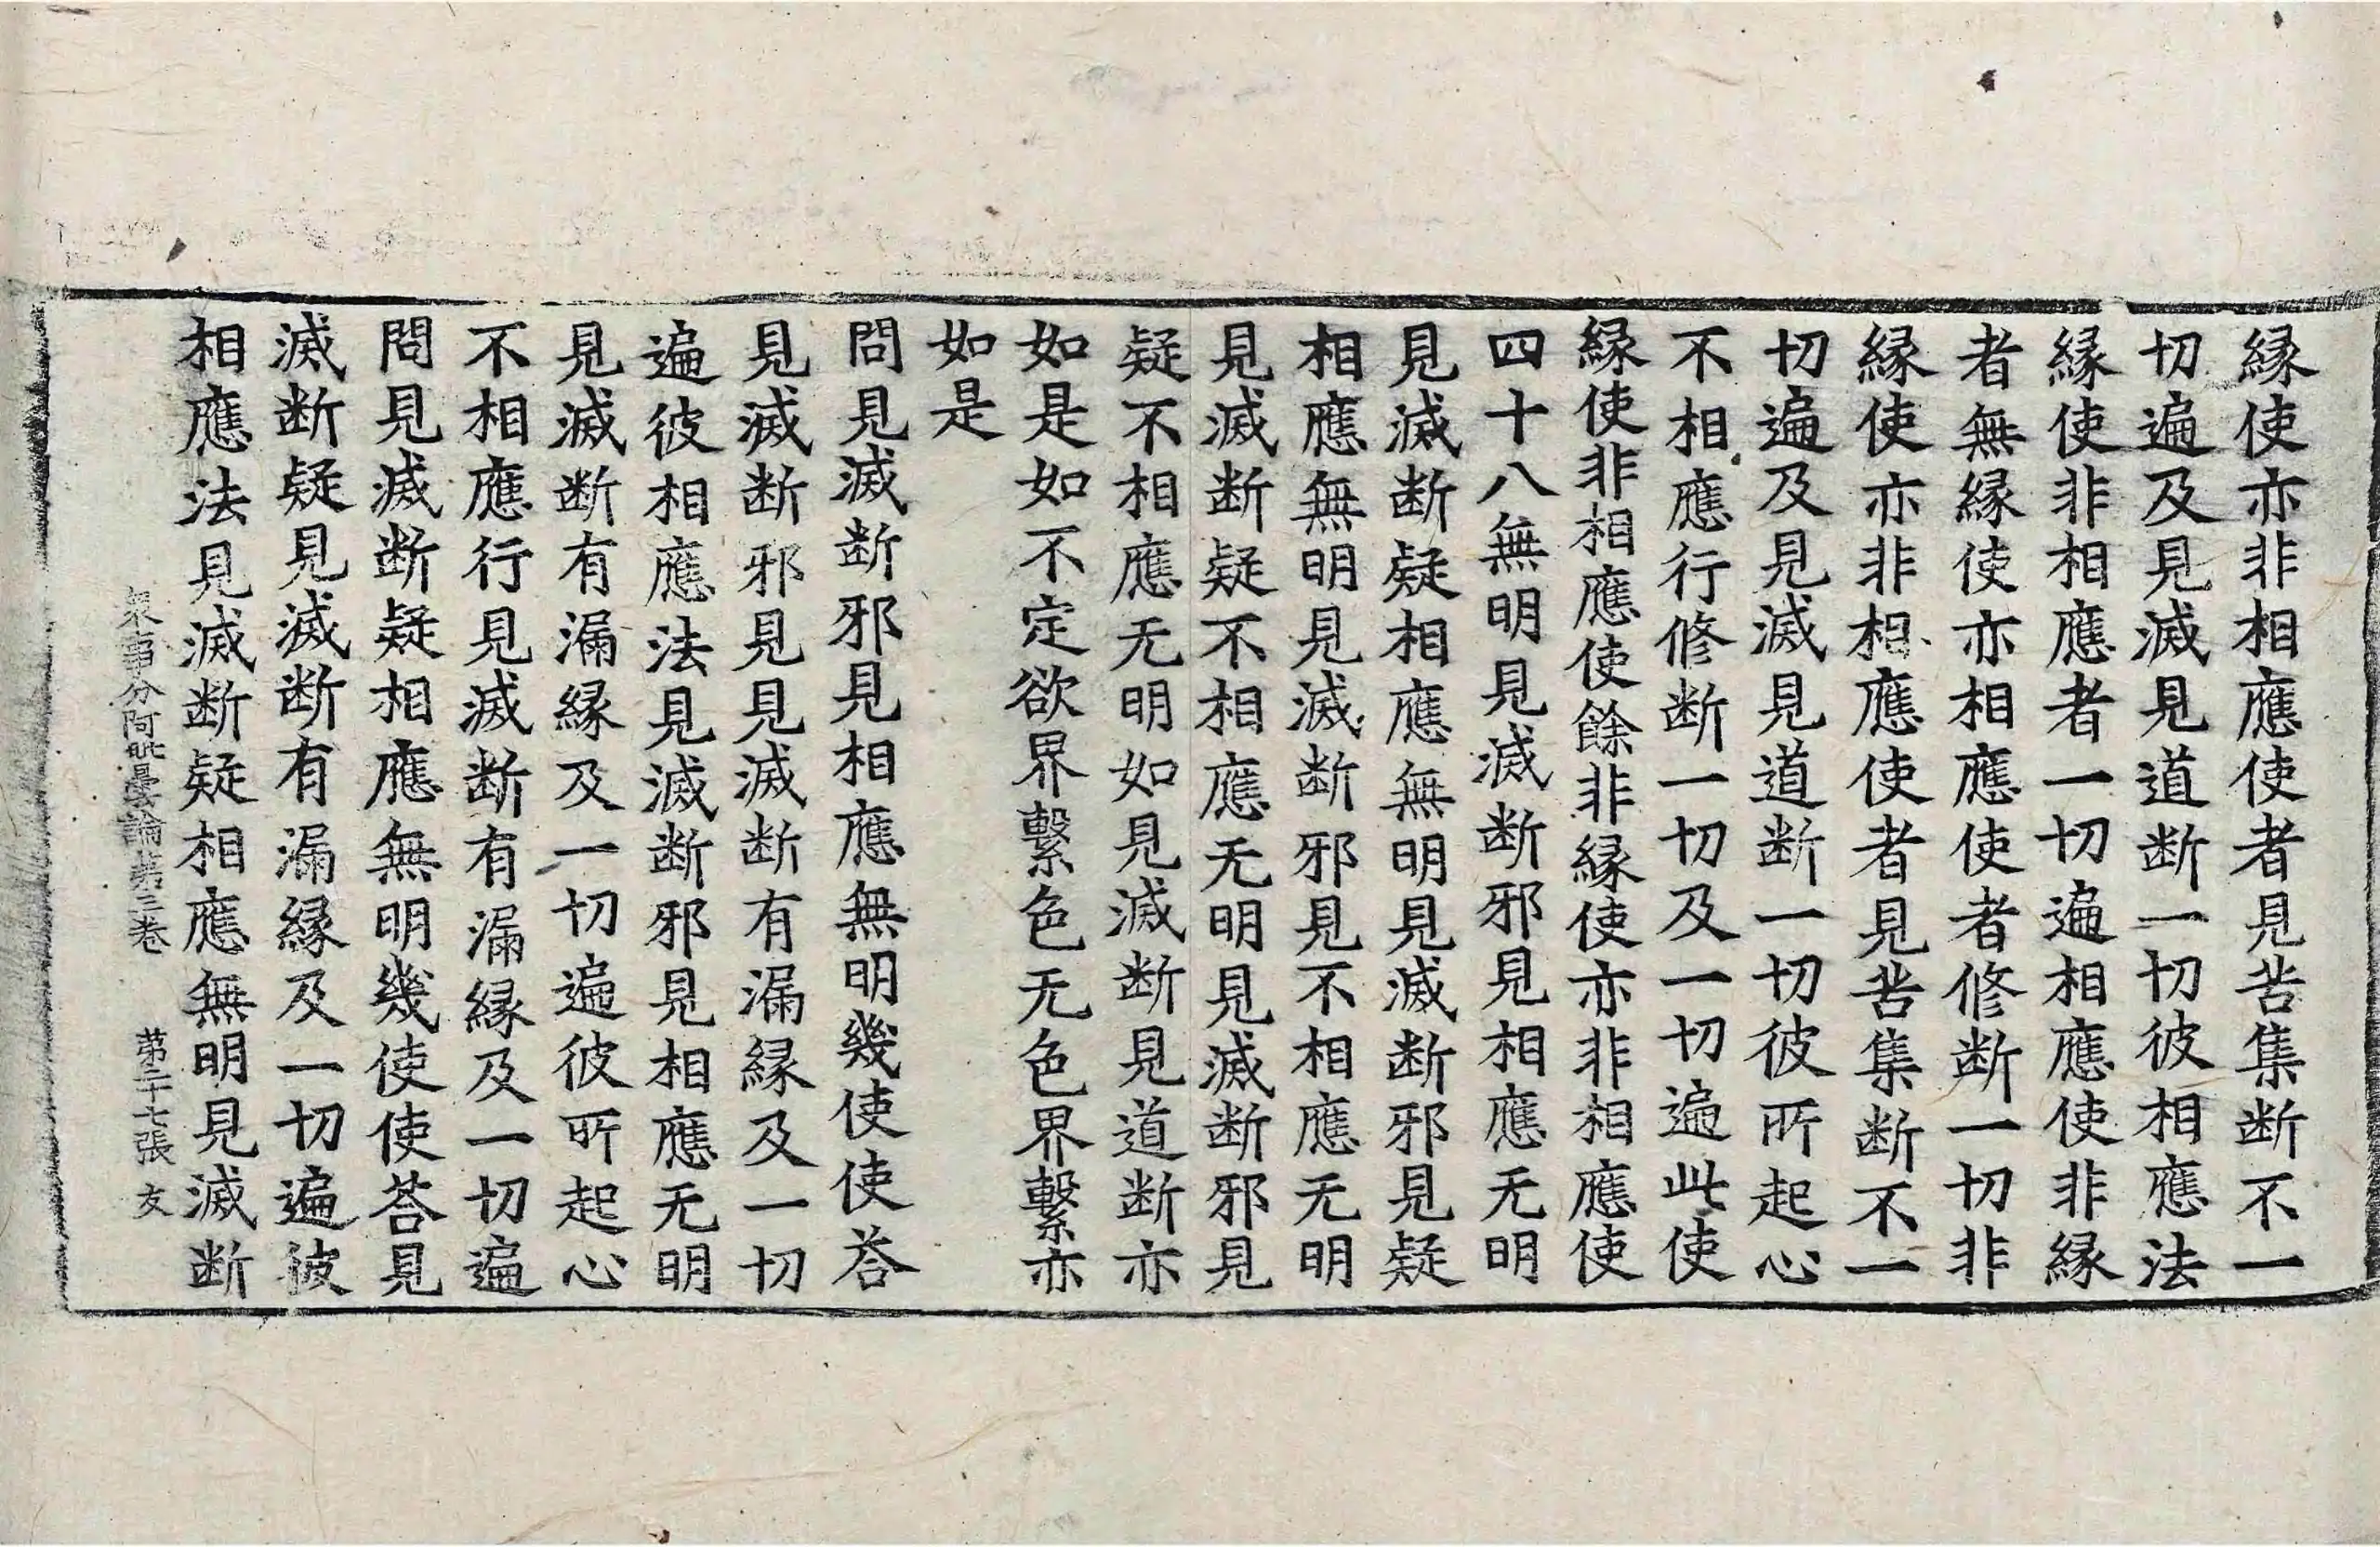 縁使亦非相應使者見苦集断不一
切遍及見滅見道断一切彼相應法
縁使非相應者一切遍相應使非縁
者無縁使亦相應使者修断一切非
縁使亦非相應使者見苦集断不一
切遍及見滅見道断一切彼所起心
不相應行修断一切及一切遍此使
縁使非相應使餘非縁使亦非相應使
四十八無明見滅断邪見相應无明
見滅断疑相應無明見滅断邪見疑
相應無明見滅断邪見不相應无明
見滅断疑不相應无明見滅断邪見
疑不相應无明如見滅断見道断亦
如是如不定欲界繫色无色界繫亦
如是
問見滅断邪見相應無明幾使使荅
見滅断邪見見滅断有漏縁及一切
遍彼相應法見滅断邪見相應无明
見滅断有漏縁及一切遍彼所起心
不相應行見滅断有漏縁及一切遍
問見滅断疑相應無明幾使使荅見
滅断疑見滅断有漏縁及一切遍彼
相應法見滅断疑相應無明見滅断
衆事分阿毗曇論第三卷 第二十七張 友